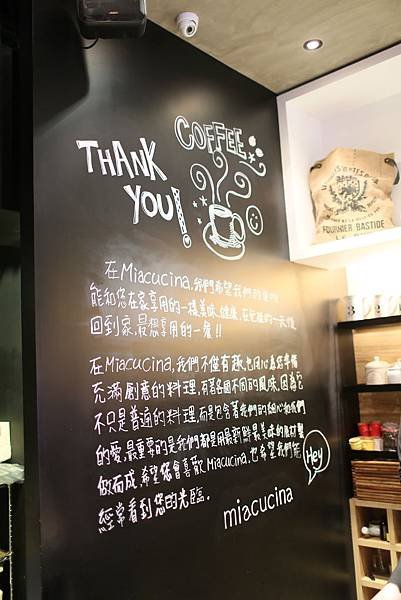 COFFEE
THANK
YOU!
在Miacucina,我們希望我們的食物
能和您在家享用的一樣美味、健康,在忙碌的一天後,
回到家,最想享用的一餐!!
在Miacucina,我們不僅有趣,也用心為您準備
充滿創意的料理,有著各國不同的風味,因為它
不只是普通的料理,而是包含著我們的細心和我們
的愛,最重要的是我們都使用最新鮮最美味的食材製
做而成,希望您會喜歡Miacucina,也希望我們能
經常看到您的光臨.
Hey
miacucina
FOURNIER BASTIDE